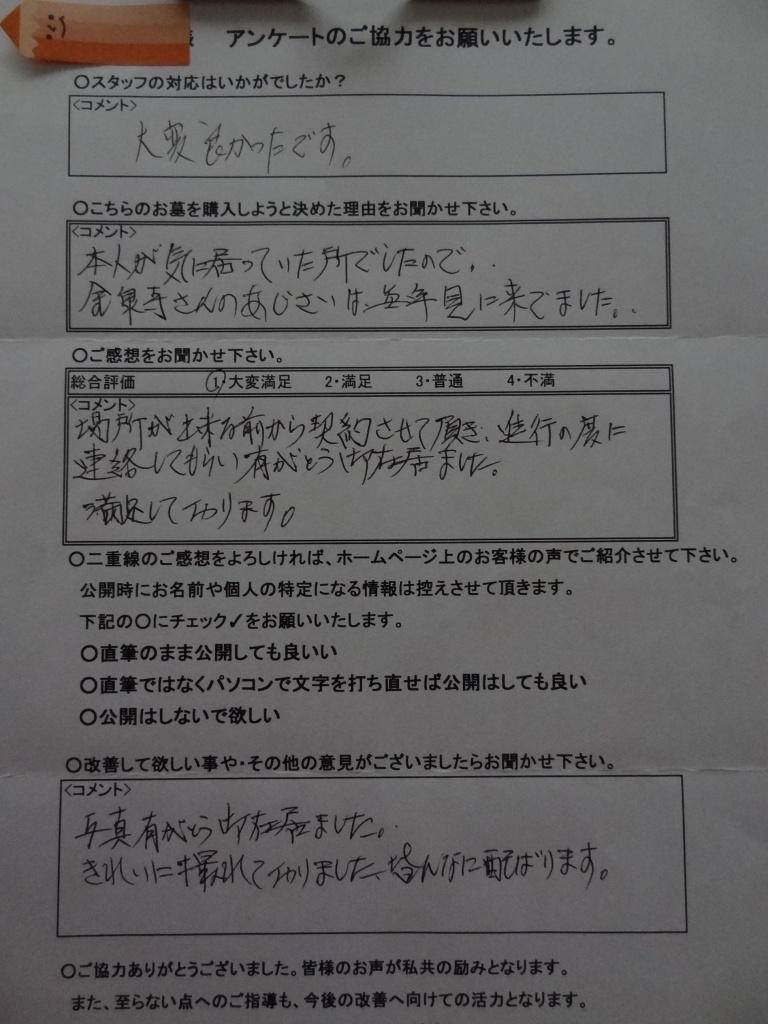 様 アンケートのご協力をお願いいたします。
〇スタッフの対応はいかがでしたか？
<コメント>
大変良かったです。
〇こちらのお墓を購入しようと決めた理由をお聞かせ下さい。
<コメント>
本人が気に居っていた所でしたので、
金泉寺さんのあじさいは、毎年見に来てました。
〇ご感想をお聞かせ下さい。
総合評価 1・大変満足 2・満足 3・普通 4・不満
<コメント>
場所が出来る前から契約させて頂き、進行の度に
連絡してもらい有がとう御在居ました。
満足しております。
〇二重線のご感想をよろしければ、ホームページ上のお客様の声でご紹介させて下さい。
公開時にお名前や個人の特定になる情報は控えさせて頂きます。
下記の〇にチェック✓をお願いいたします。
〇直筆のまま公開しても良いい
〇直筆ではなくパソコンで文字を打ち直せば公開はしても良い
〇公開はしないで欲しい
〇改善して欲しい事や・その他の意見がございましたらお聞かせ下さい。
<コメント>
写真有がとう御在居ました。
きれいに撮れておりました、皆んなに配ばります。
〇ご協力ありがとうございました。皆様のお声が私共の励みとなります。
また、至らない点へのご指導も、今後の改善へ向けての活力となります。